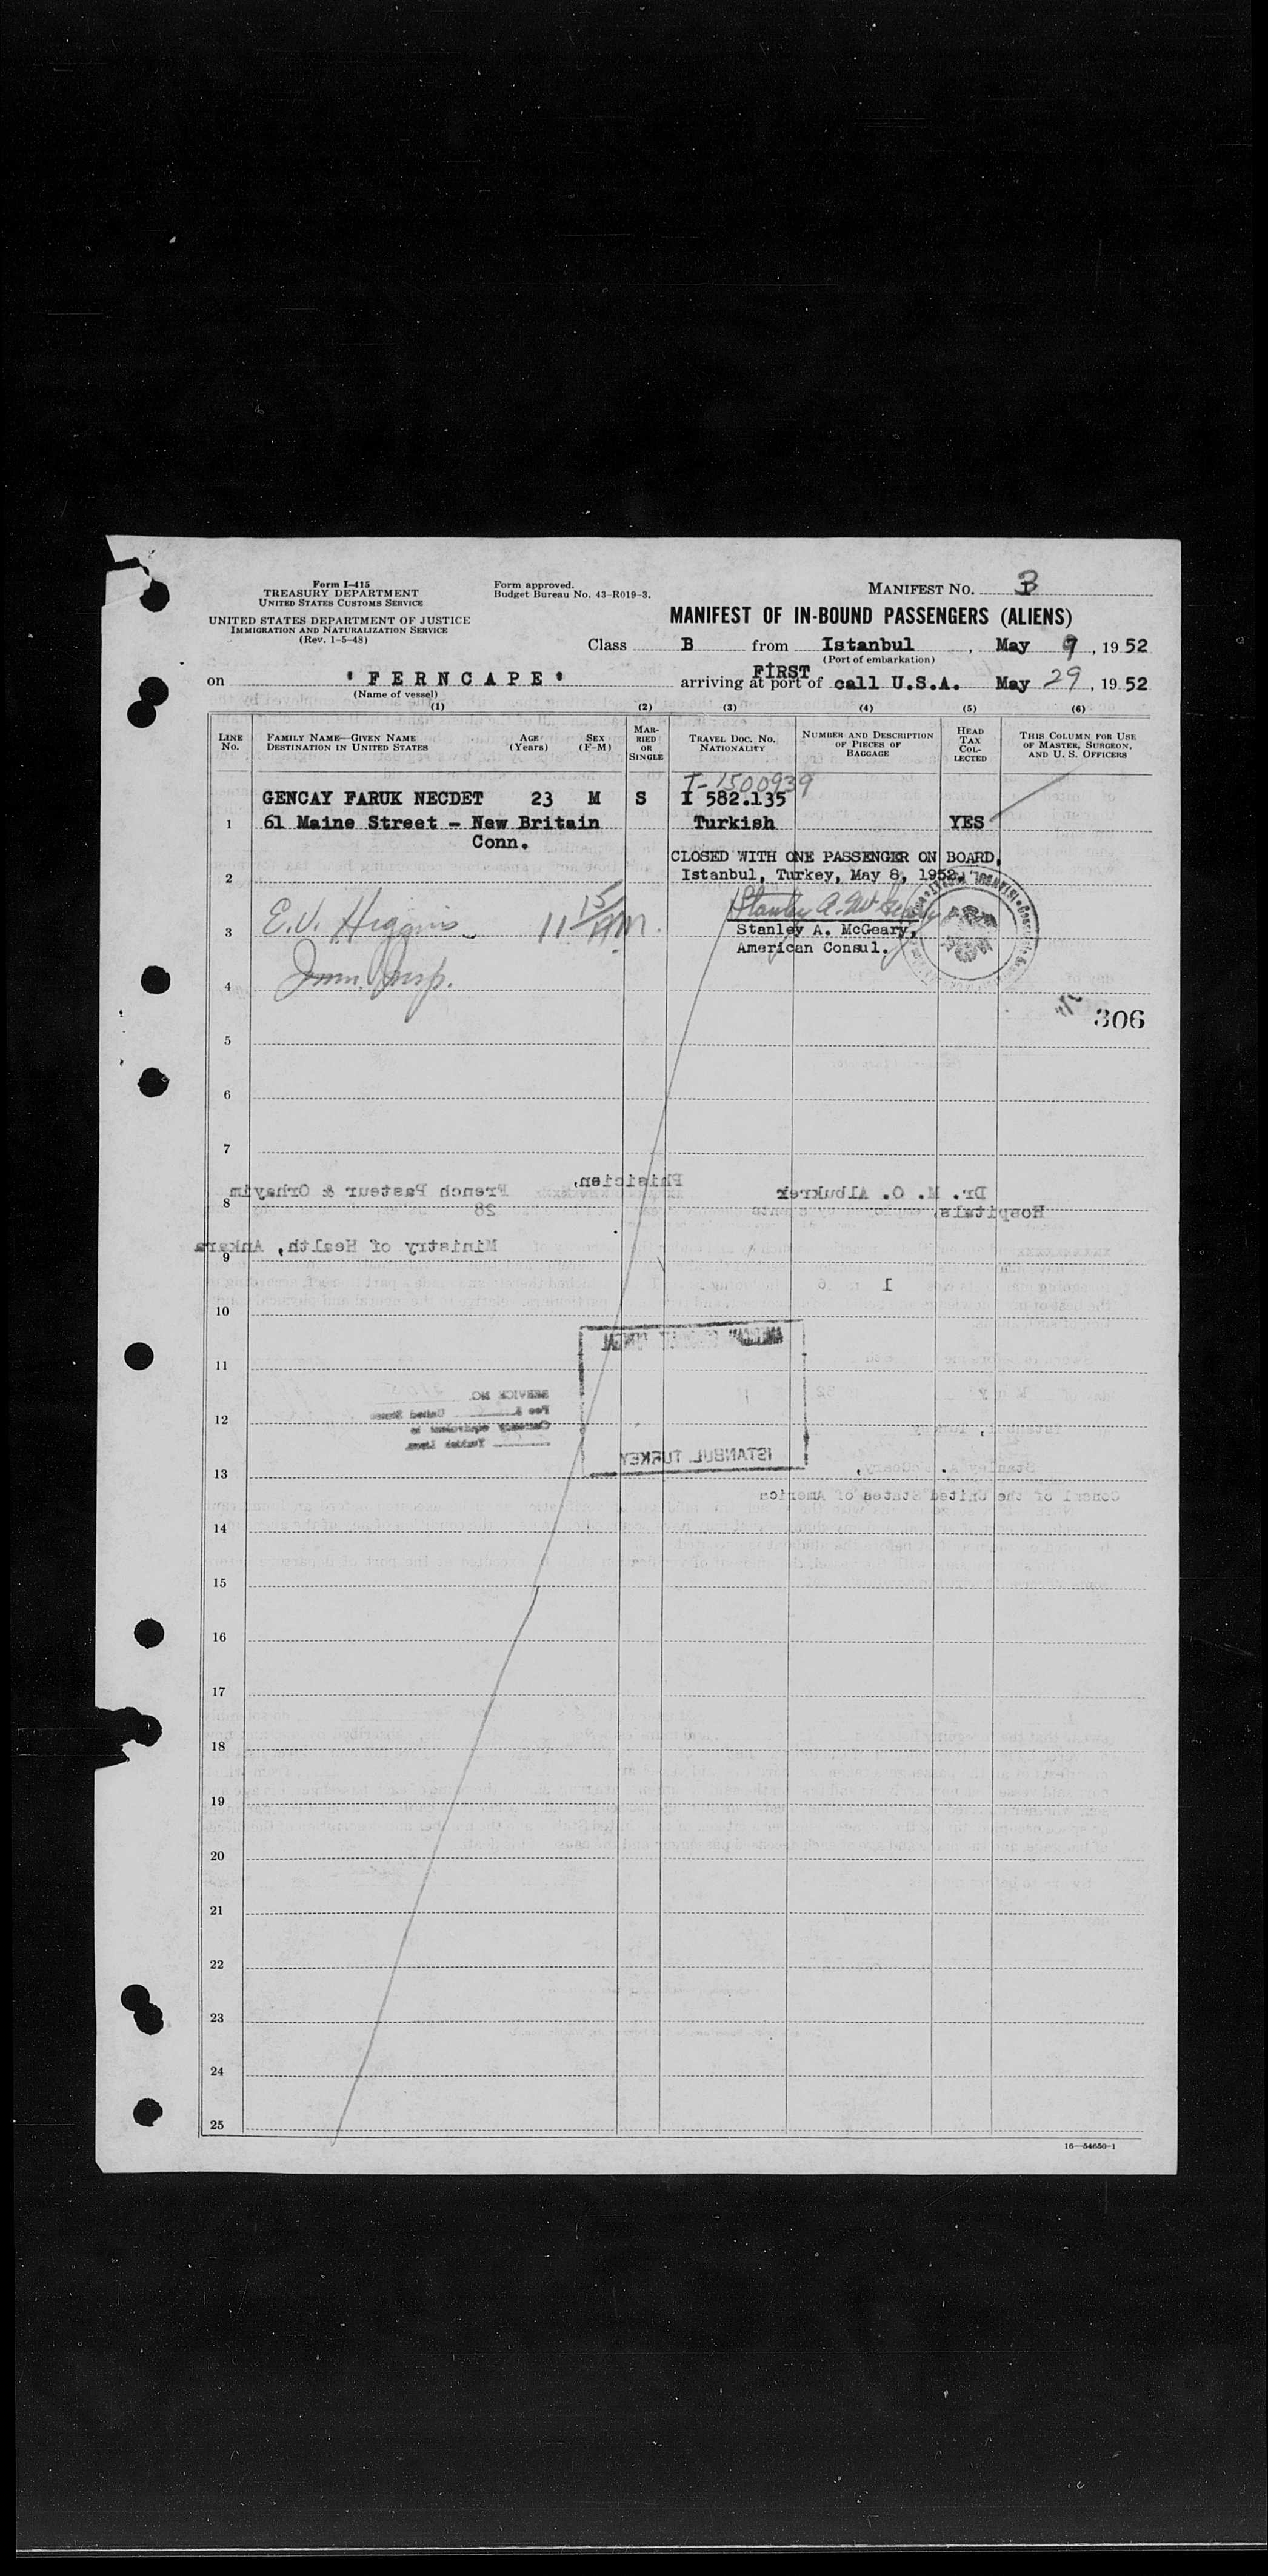 Form I-415
TREASURY DEPARTMENT
UNITED STATES CUSTOMS SERVICE
UNITED STATES DEPARTMENT OF JUSTICE
IMMIGRATION AND NATURALIZATION SERVICE
(Rev. 1-5-48)
Form approved.
Budget Bureau No. 43-R019-3.
MANIFEST NO. 3
MANIFEST OF IN-BOUND PASSENGERS (ALIENS)
Class B from Istanbul, May 9, 1952
(Port of embarkation)
on "FERNCAPE" arriving at FIRST port of call U.S.A. May 29, 1952
(Name of vessel)
(1) (2) (3) (4) (5) (6)
LINE NO. FAMILY NAME—GIVEN NAME DESTINATION IN UNITED STATES AGE (Years) SEX (F-M) MARRIED OR SINGLE TRAVEL DOC. NO. NATIONALITY NUMBER AND DESCRIPTION OF PIECES OF BAGGAGE HEAD TAX COLLECTED THIS COLUMN FOR USE OF MASTER, SURGEON, AND U. S. OFFICERS
T-1500939
GENCAY FARUK NECDET 23 M S I 582.135
1 61 Maine Street - New Britain Turkish YES
Conn.
CLOSED WITH ONE PASSENGER ON BOARD,
2 Istanbul, Turkey, May 8, 1952.
Stanley A. McGeary
3 E.V. Higgins 11 15/AM. Stanley A. McGeary,
American Consul.
4 Imm. Insp.
306
5
6
7
Phisicien,
8 Dr. M. O. Albukrek French Pasteur & Orhayim
Hospitals, 28
9 Ministry of Health, Ankara
1
10
11
SERVICE NO.
Fee $ United States
12 Currency equivalent to
Turkish Liras
ISTANBUL TURKEY
13 Stanley A. McGeary,
Consul of the United States of America
14
15
16
17
18
19
20
21
22
23
24
25
16—54650-1